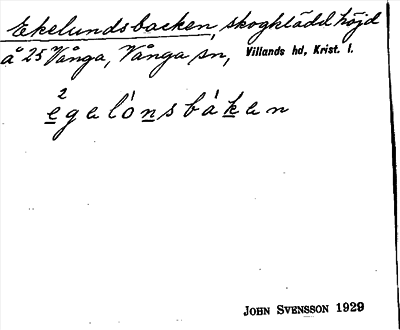 Ekelundsbacken, skogklädd höjd
å 25 Vånga, Vånga sn, Villands hd, Krist. l.
2
egelónsbáken
JOHN SVENSSON 1929